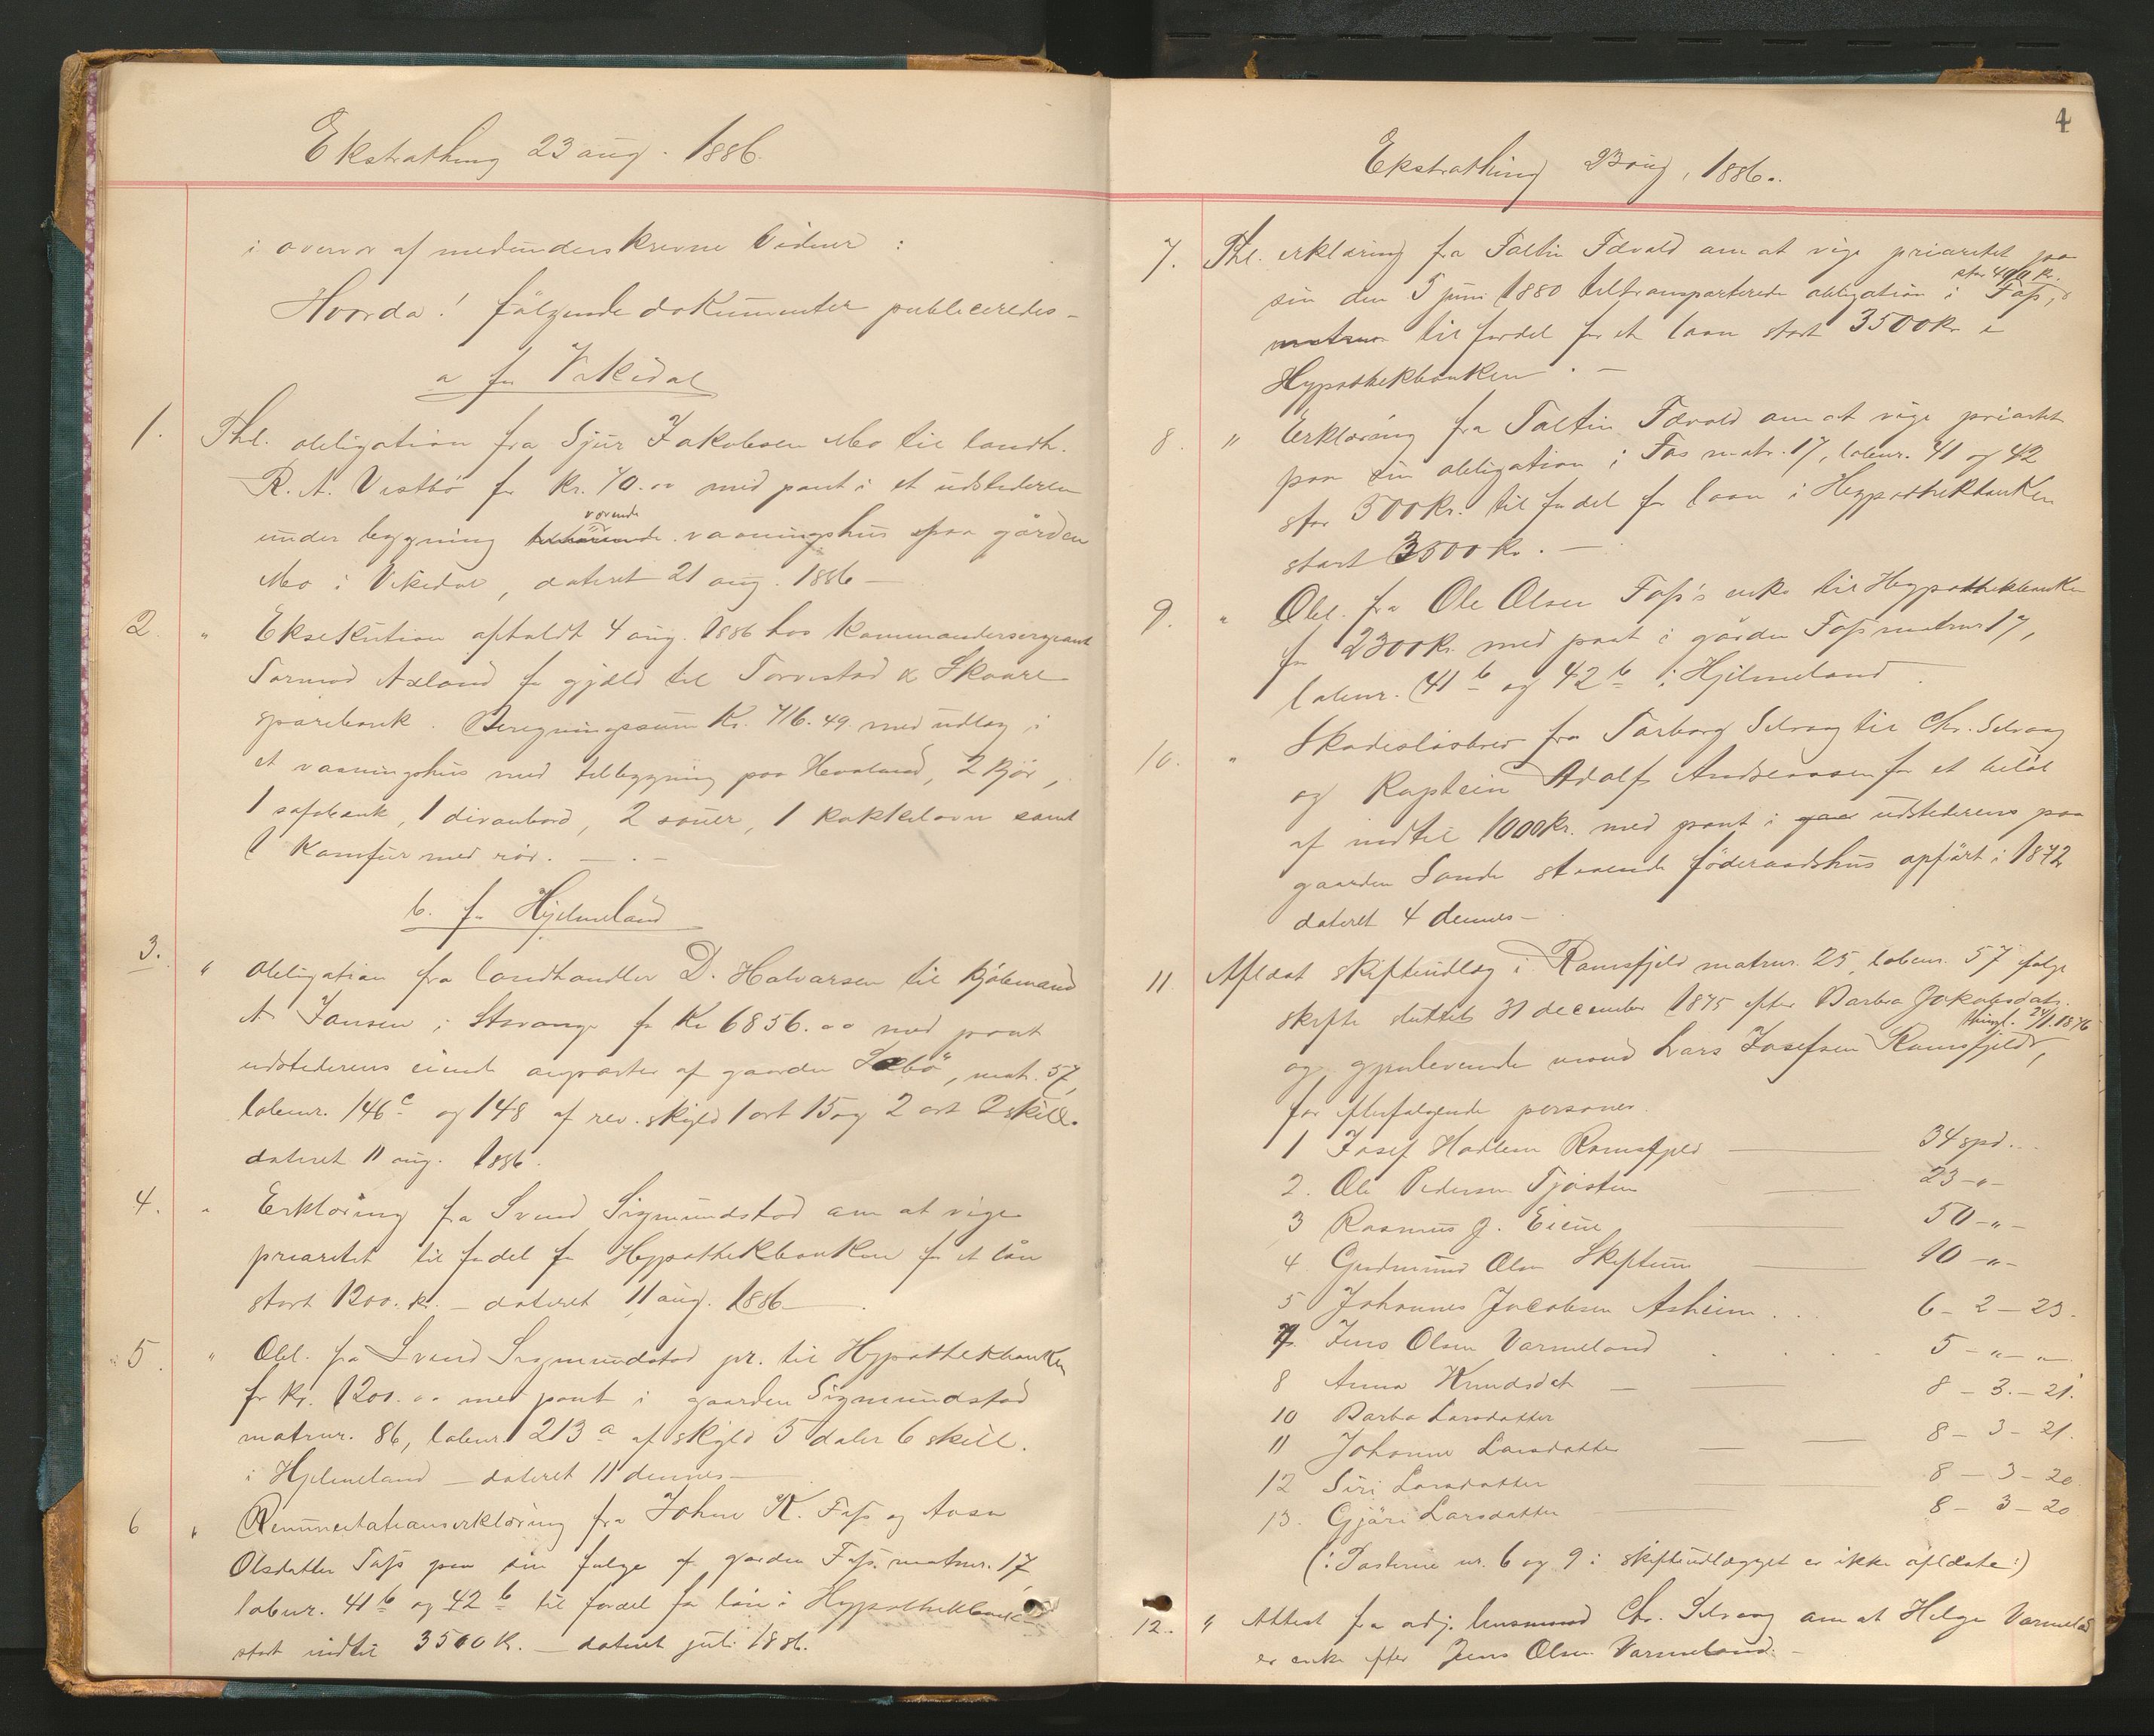 Ekstrathing 23 aug. 1886.
i overvær af medunderskrevne vidner :
Hvorda! følgende dokumenter publiceredes -
a for Vikedal
1. Thl. obligation fra Sjur Jakobsen Mo til landh.
R. A. Vestbö for kr. 70.00 med pant i et udstederen
under bygning tilhörende værende vaaningshus paa gården
Mo i Vikedal, dateret 21 aug. 1886 —
2. " Eksekution afholdt 4 aug. 1886 hos kommandersergeant
Tormod Axland for gjæld til Torvestad & Skaare
sparebank. Beregningssum Kr. 716.49 med udlæg i
et vaaningshus med tilbygning paa Hevaland, 2 kjör,
1 sofabænk, 1 divanbord, 2 souer, 1 kakkelovn samt
1 komfur med rör. — . —
b. for Hjelmeland
3. " obligation fra landhandler D. Halvorsen til kjöbmand
A Jansen i Stavanger for Kr 6856.00 med pant
udstederens eiende anparter af gaarden Sæbö, mat. 57,
löbenr. 146c og 148 af rev. skyld 1 ort 15 og 2 ort 2 skill.
dateret 11 aug. 1886.
4. " Erklæring fra Svend Sigmundstad om at vige
prioritet til fordel for Hypothekbanken for et lån
stort 1200. kr. — dateret 11 aug. 1886 —
5. " Obl. fra Svend Sigmundstad pr. til Hypothekbanken
for kr. 1200.00 med pant i gaarden Sigmundstad
matrnr. 86, löbenr. 213a af skyld 5 daler 6 skill.
i Hjelmeland — dateret 11 dennes —
6 " Renunciationserklæring fra Johne K. Fafs og Aasa
Olsdatter Fafs paa sin fölge af gården Fafs matrnr. 17,
löbnr. 41b og 42b til fordel for lån i Hypothekbank
stort indtil 3500 kr. — dateret juli 1886.
4
Ekstrathing 23 aug. 1886.
7. Thl. erklæring fra Taltin Fævold om at vige prioritet paa
sin den 5 juni 1880 tiltransporterede obligation i Fafs, stor 400 kr.
matrnr til fordel for et laan stort 3500 kr i
Hypothekbanken . —
8 " Erklæring fra Taltin Fævold om at vige prioritet
paa sin obligation i Fas matr. 17, löbenr. 41 og 42
stor 500 kr. til fordel for laan i Hypothekbanken
stort 3500 kr. —
9. " Obl. fra Ole Olsen Fafs's enke til Hypothekbanken
for 2300 kr. med pant i gården Fafs matrnr 17,
löbenr. 41b og 42b i Hjelmeland
10. " Skadeslösbrev fra Torborg Selvaag til Chr. Selvaag
og kaptein Adolf Andreassen for et beløb
af indtil 1000 kr. med pant i gaa udstederens paa
gaarden Sande staaende föderaadshus opfört i 1872
dateret 4 dennes —
11 Aflæst skifteudlæg i Ramsfjeld matrnr. 25, löbenr. 57 fölge
skifte sluttet 31 december 1875 efter Barbra Jakobsdatr.
og gjenlevende mand Lars Josefsen Ramsfjeld, thingl. 24/1 1876
for efterfølgende personer.
1 Josef Hadlesen Ramsfjeld — 34 spd. ..
2. Ole Pedersen Tjösten — 23 - " -
3 Rasmus J. Eiene — 50 - " -
4 Gudmund Olsen Skiftun — 10 - " -
5 Johannes Jacobsen Asheim . . . 6 - 2 - 23.
7 Jens Olsen Varmeland . . . . 5 - " - " -
8 Anna Knudsdat — 8 - 3. - 21.
10 Barbra Larsdatter
11 Johanne Larsdatter — 8 - 3 - 21.
12 Siri Larsdatter — 8 - 3 - 20
13. Gjöri Larsdatter — 8 - 3 - 20
(: Posterne nr. 6 og 9 i skifteudlægget er ikke aflæste :)
12. " Attest fra adj. lensmand Chr. Selvaag om at Helga Varmeland
er enke efter Jens Olsen Varmeland. —